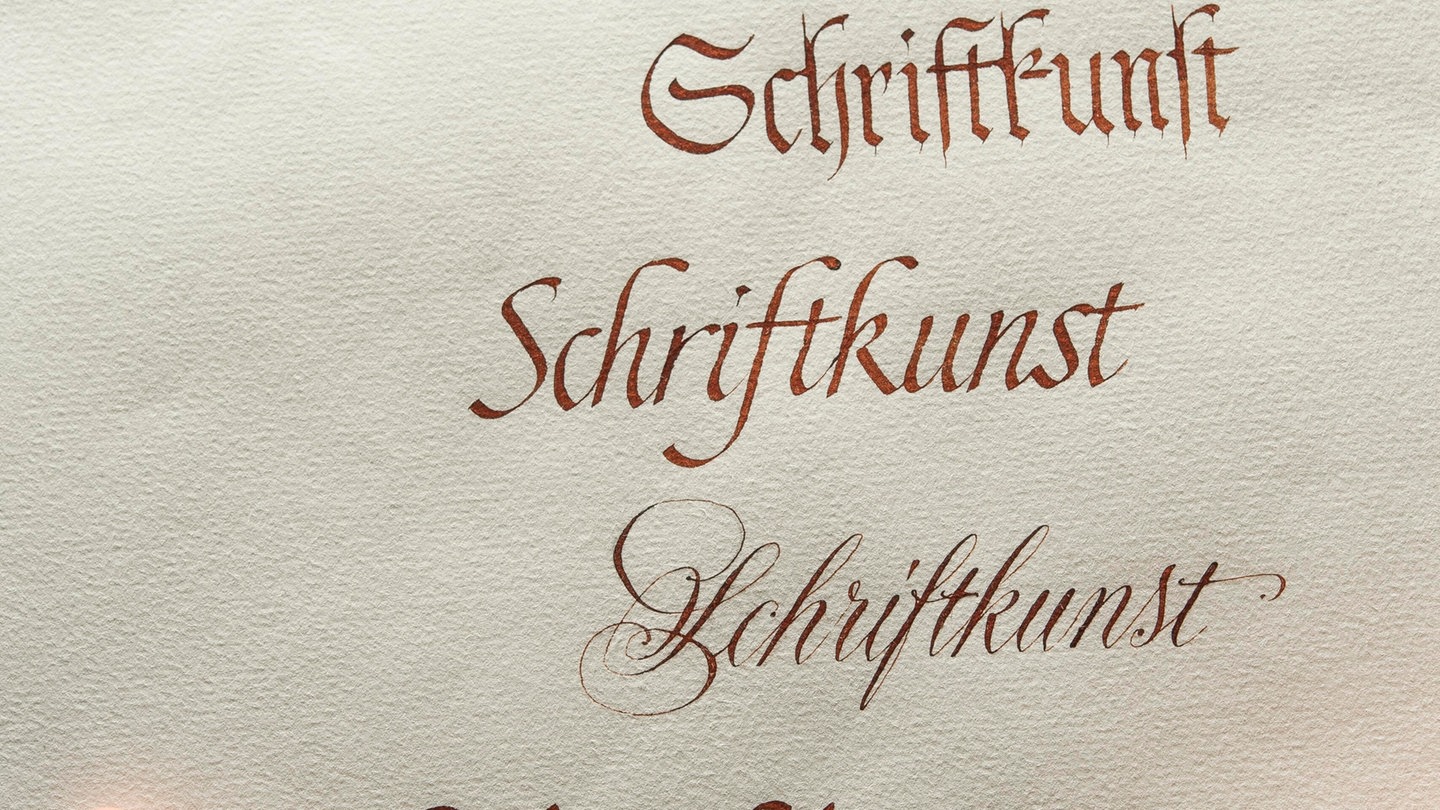 Schriftkunst
Schriftkunst
Schriftkunst